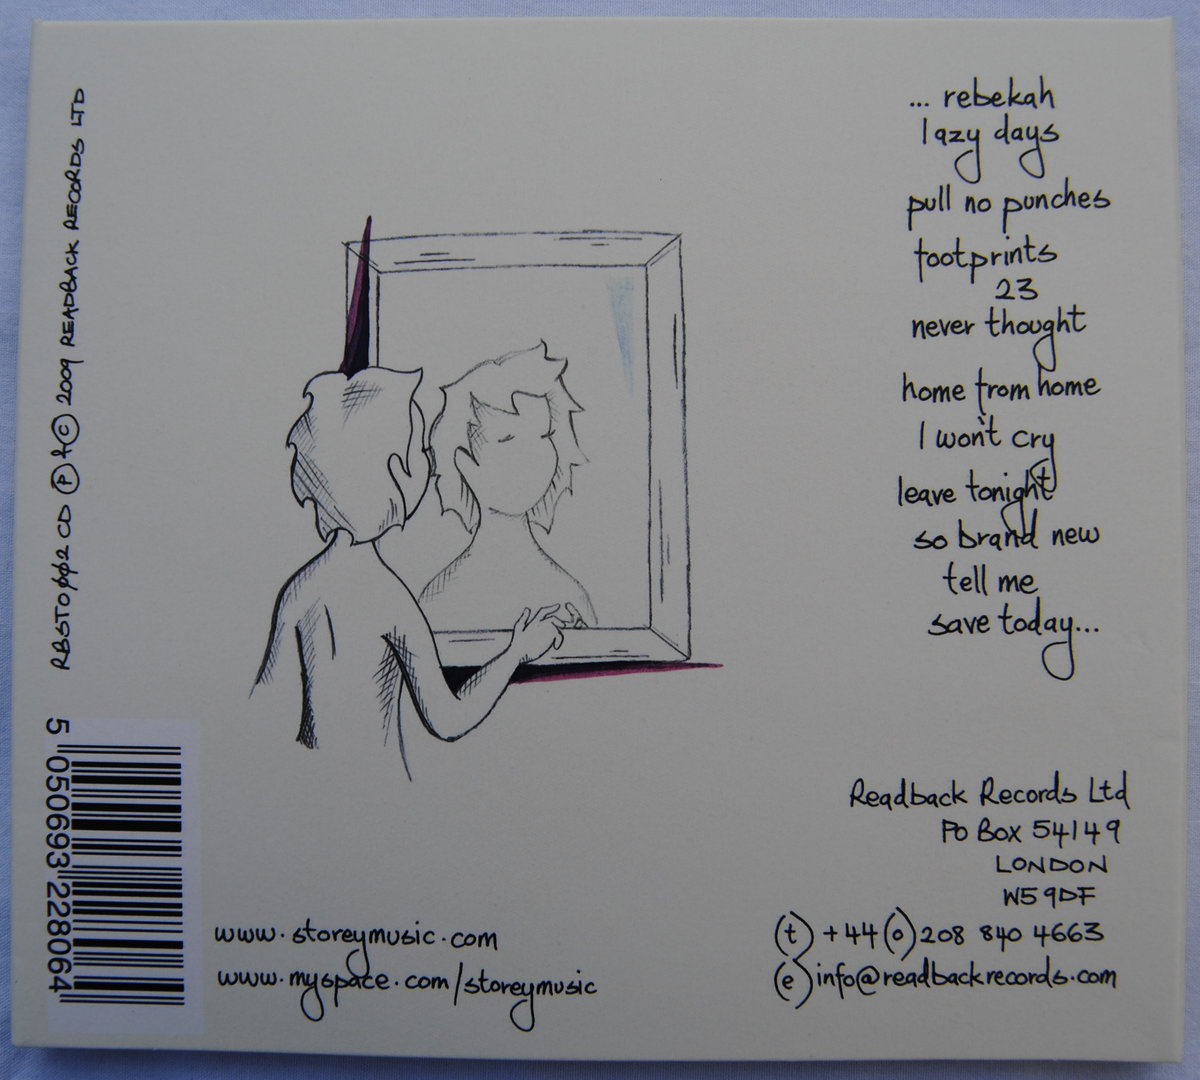 ... rebekah
lazy days
pull no punches
footprints
23
never thought
home from home
I won't cry
leave tonight
so brand new
tell me
save today...
RBST0002 CD Ⓟ & © 2009 READBACK RECORDS LTD
5 050693 228064
Readback Records Ltd
PO Box 54149
LONDON
W5 9DF
(t) +44(0)208 840 4663
(e) info@readbackrecords.com
www.storeymusic.com
www.myspace.com/storeymusic